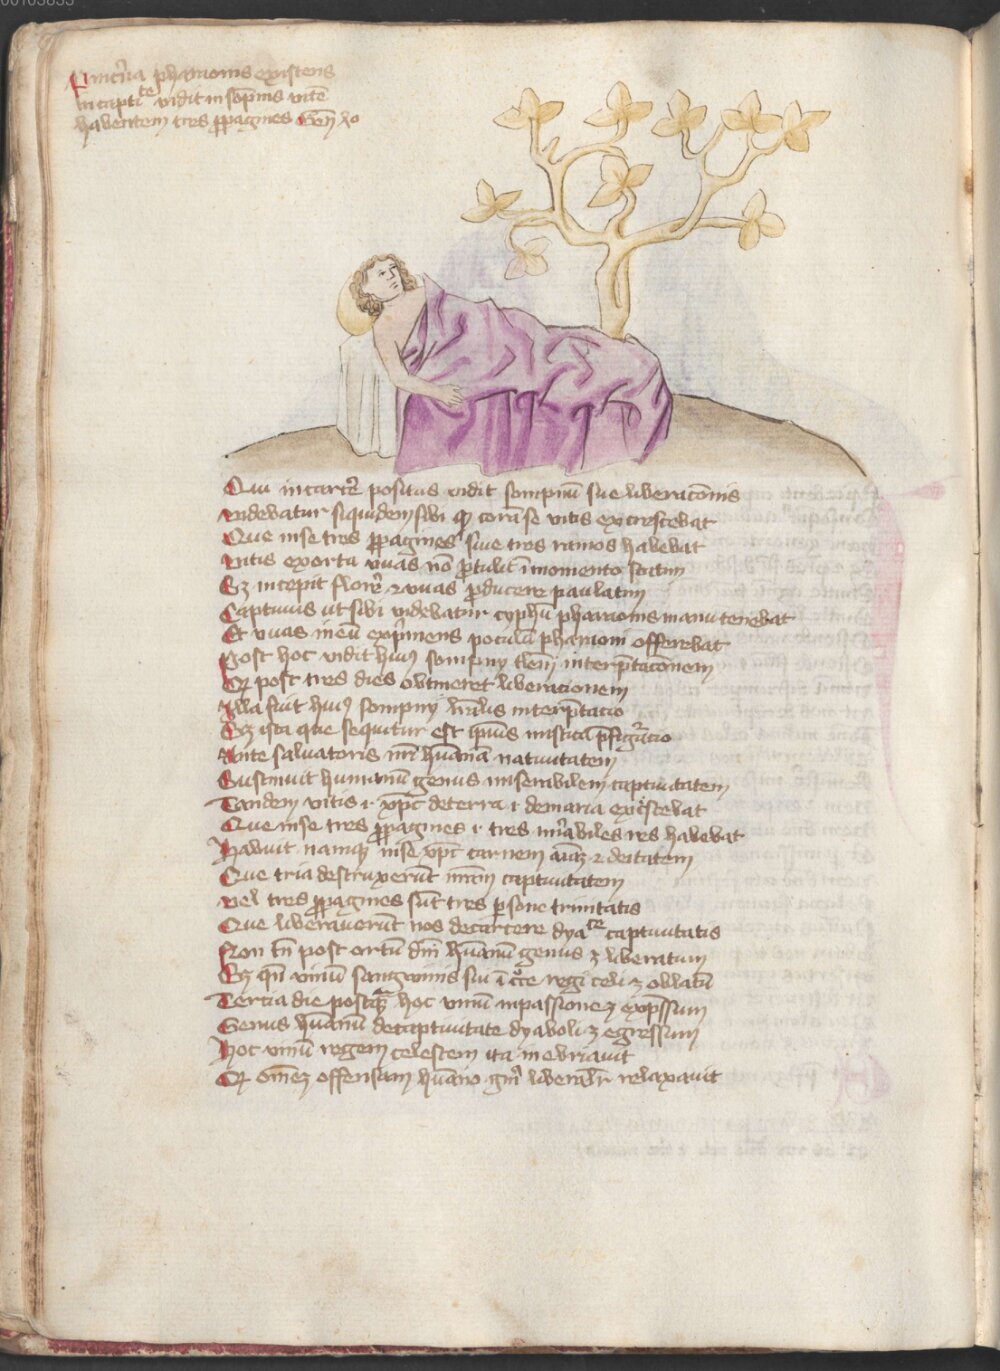 00103833
Pincerna pharaonis existens
in captite vidit in sompnis vite
habentem tres ppagines Gen xo
Qui in carcere positus vidit sompniu sue liberaconis
videbatur siquidem sibi qz cora se vitis excrescebat
Que in se tres ppagines siue tres ramos habebat
vitis exorta vuas no ptulit i momento statim
Sz incepit flore et vuas pducere paulatim
Captiuus ut sibi videbatur cyphu pharaonis manu tenebat
Et vuas in eu exprimens poculu pharaoni offerebat
Post hoc vidit hui sompny interptaconem
Qz post tres dies obtineret liberacionem
Illa fuit hui sompny lralis interptacio
Sz ista que sequitur est ipius mistica pfigracio
Ante saluatoris nri humana natiuitatem
Sustinuit humanu genus miserabilem captiuitatem
Tandem vitis i xpc de terra i de maria excrescebat
Que in se tres ppagines i tres mirabiles res habebat
Habuit namqz in se xpc carnem aiaz et deitatem
Que tria destruxerut nram captiuitatem
vel tres ppagines sut tres psone trinitatis
Que liberauerut nos de carcere dyace captiuitatis
Non tn post ortu dni humanu genus z liberatum
Sz qn vinu sanguinis sui i cce regi celi z oblatu
Tercia die postqz hoc vinu in passione z expssum
Genus humanu de captiuitate dyaboli z egressum
Hoc vinu regem celestem ita inebriauit
Qz omez offensam humano gni liberalr relaxauit